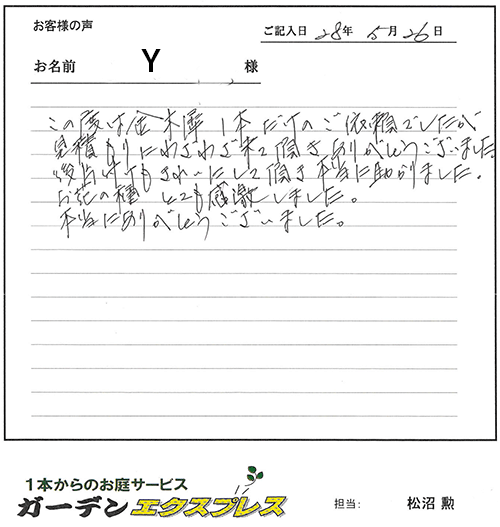 お客様の声
ご記入日 28年 5月 26日
お名前 Y 様
この度は金木犀1本だけのご依頼でしたが
見積もりにわざわざ来て頂きありがとうございました
後片付けもきれいにして頂き本当に助かりました。
お花の種とても感激しました。
本当にありがとうございました。
1本からのお庭サービス
ガーデンエクスプレス
担当: 松沼 勲